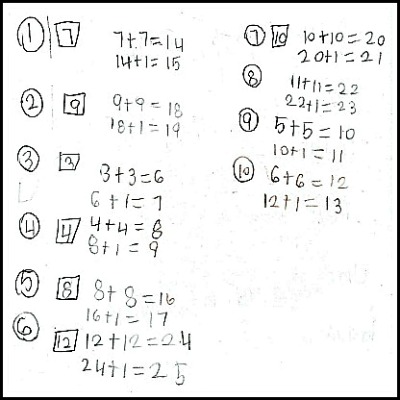 ① 7 7+7=14
14+1=15
② 9 9+9=18
18+1=19
③ 3 3+3=6
6+1=7
④ 4 4+4=8
8+1=9
⑤ 8 8+8=16
16+1=17
⑥ 12 12+12=24
24+1=25
⑦ 10 10+10=20
20+1=21
⑧ 11+11=22
22+1=23
⑨ 5+5=10
10+1=11
⑩ 6+6=12
12+1=13